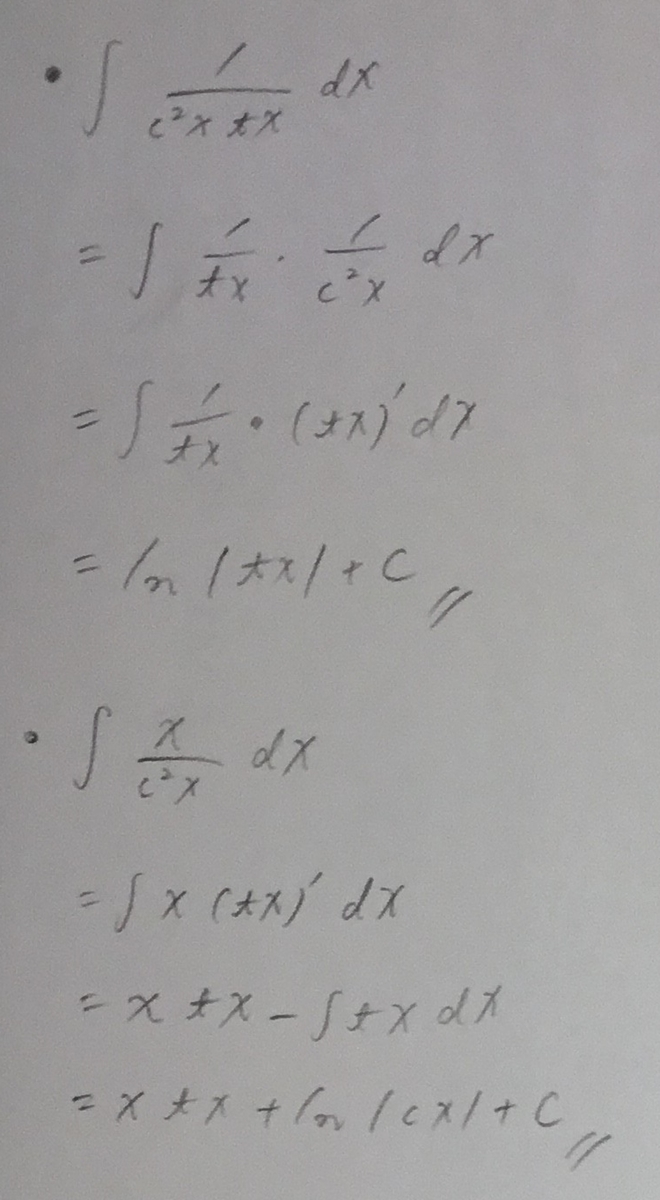 • ∫ 1/(c²x tx) dx
= ∫ 1/tx · 1/c²x dx
= ∫ 1/tx • (tx)' dx
= ln |tx| + C //
• ∫ x/c²x dx
= ∫ x (tx)' dx
= x tx - ∫ tx dx
= x tx + ln |cx| + C //